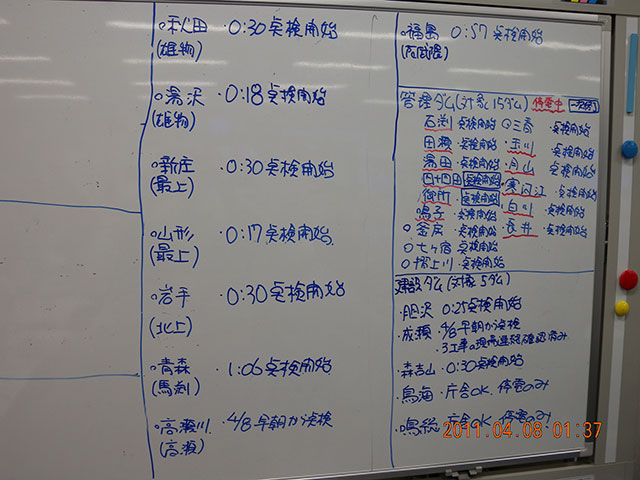 ○秋田 ・0:30 点検開始
(雄物)
○湯沢 ・0:18 点検開始
(雄物)
○新庄 ・0:30 点検開始
(最上)
○山形 ・0:17 点検開始
(最上)
○岩手 ・0:30 点検開始
(北上)
○青森 ・1:06 点検開始
(馬渕)
○高瀬川 ・4/8 早朝から点検
(高瀬)
○福島 0:57 点検開始
(阿武隈)
管理ダム(対象 15ダム) 停電中
石渕 ・点検開始 ○三春 ・点検開始
田瀬 ・点検開始 ・玉川 ・点検開始
湯田 ・点検開始 ・月山 ・点検開始
四十四田 点検開始 ・寒河江 ・点検開始
御所 ・点検開始 ・白川 ・点検開始
鳴子 ・点検開始 ・長井 ・点検開始
○釜房 ・点検開始
○七ヶ宿 ・点検開始
○摺上川 ・点検開始
建設ダム(対象 5ダム)
・胆沢 0:25 点検開始
・成瀬 4/8 早朝から点検
・3工事の現場連絡確認済み
・森吉山 ・0:30 点検開始
・鳥海 ・庁舎OK. 停電のみ
・鳴総 ・庁舎OK 停電のみ
2011.04.08 01:37